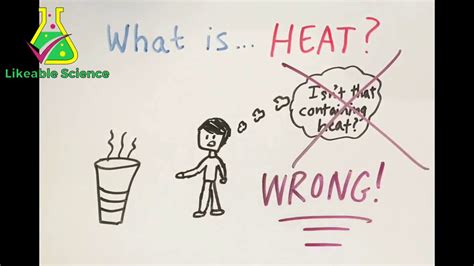 What is... HEAT?
Likeable Science
Isn't that
containing
heat?
WRONG!